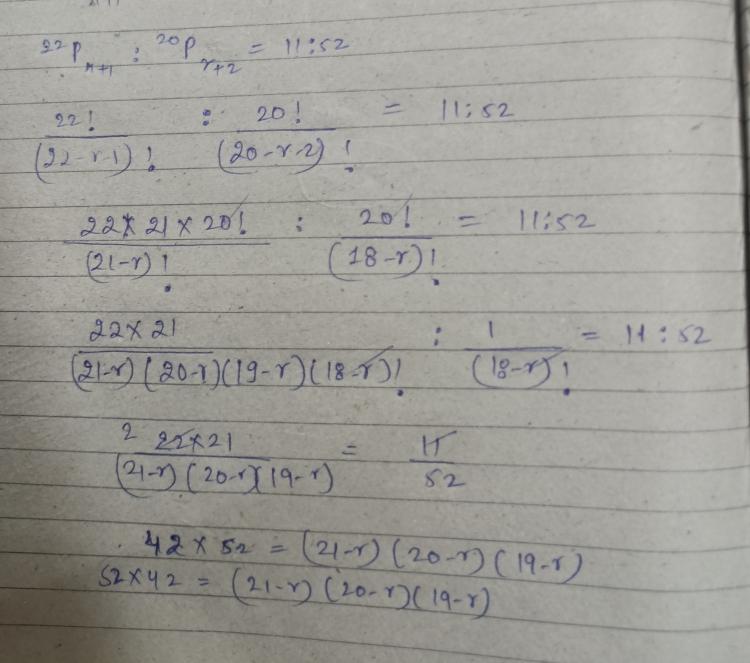 ²²P r+1 : ²⁰P r+2 = 11:52
22! / (22-r-1)! : 20! / (20-r-2)! = 11:52
22 x 21 x 20! / (21-r)! : 20! / (18-r)! = 11:52
22 x 21 / (21-r)(20-r)(19-r)(18-r)! : 1 / (18-r)! = 11:52
2 22 x 21 / (21-r)(20-r)(19-r) = 11 / 52
42 x 52 = (21-r)(20-r)(19-r)
52 x 42 = (21-r)(20-r)(19-r)